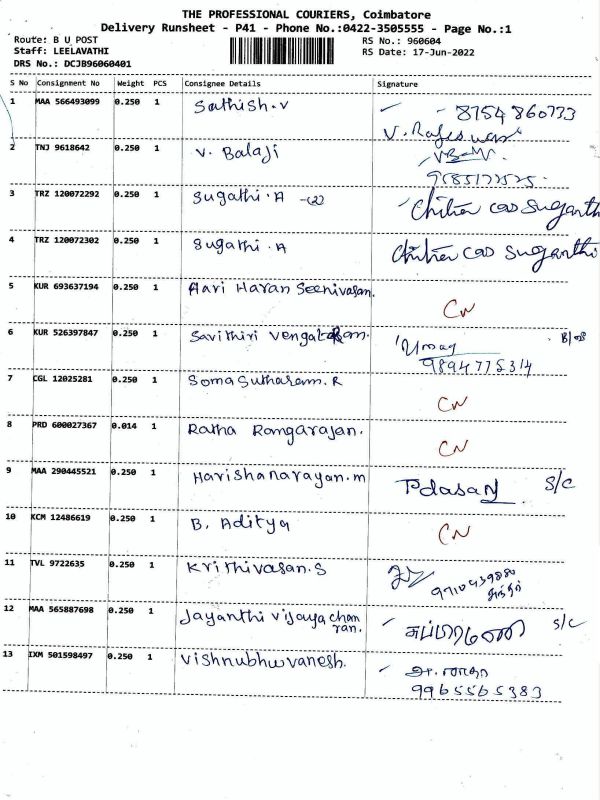 THE PROFESSIONAL COURIERS, Coimbatore
Delivery Runsheet - P41 - Phone No.:0422-3505555 - Page No.:1
Route: B U POST
RS No.: 960604
Staff: LEELAVATHI
RS Date: 17-Jun-2022
DRS No.: DCJB96060401
S No Consignment No Weight PCS Consignee Details Signature
1 MAA 566493099 0.250 1 Sathish.v - 8754860773
V. Rajeswari
2 TNJ 9618642 0.250 1 V. Balaji
3 TRZ 120072292 0.250 1 Sugathi.A -(2) Chitra CAD Suganthi
4 TRZ 120072302 0.250 1 Sugathi.A Chitra CAD Suganthi
5 KUR 693637194 0.250 1 Hari Haran Seenivasan. CN
6 KUR 526397847 0.250 1 Savithiri
9894775314
7 CGL 12025281 0.250 1 Soma Sutharsam.R CN
8 PRD 600027367 0.014 1 Ratha Rangarajan. CN
9 MAA 290445521 0.250 1 Harishanarayan.m S/C
10 KCM 12486619 0.250 1 B. Aditya CN
11 TVL 9722635 0.250 1 Krithivasan.S
12 MAA 565887698 0.250 1 Jayanthi Vijaya chan சுப்ரமணி S/C
ran.
13 IXM 501598497 0.250 1 Vishnubhuvanesh.
9965565383